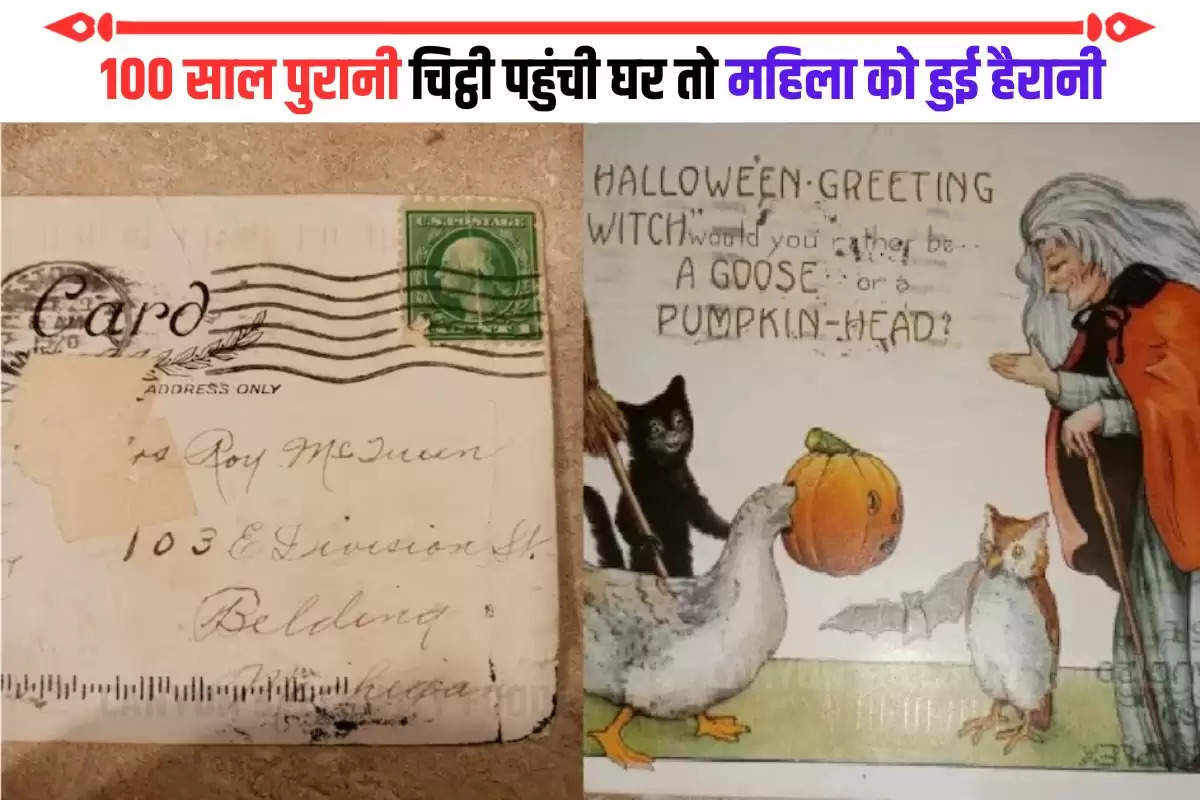 100 साल पुरानी चिट्ठी पहुंची घर तो महिला को हुई हैरानी
Card
U.S. POSTAGE
ADDRESS ONLY
rs Roy McQueen
103 E Division St.
Belding
HALLOWE'EN·GREETING
WITCH" would you rather be..
A GOOSE.. or a
PUMPKIN-HEAD?